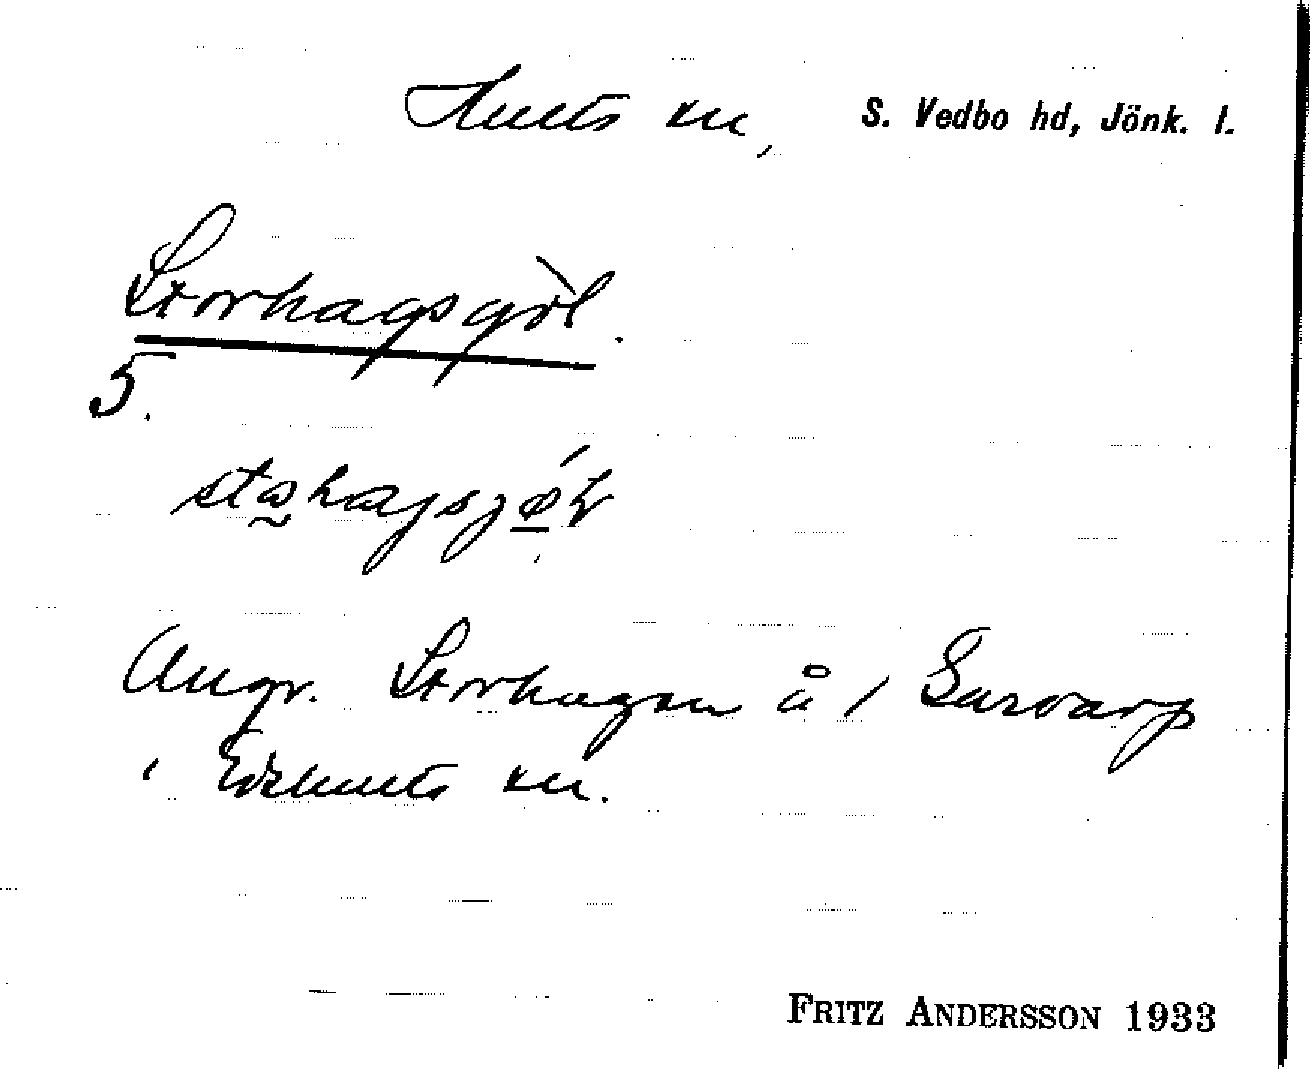 Hults sn, S. Vedbo hd, Jönk. l.
Storhagsgöl.
5.
Angr. Storhagen å 1 Sarvarp
i Edshults sn.
FRITZ ANDERSSON 1933